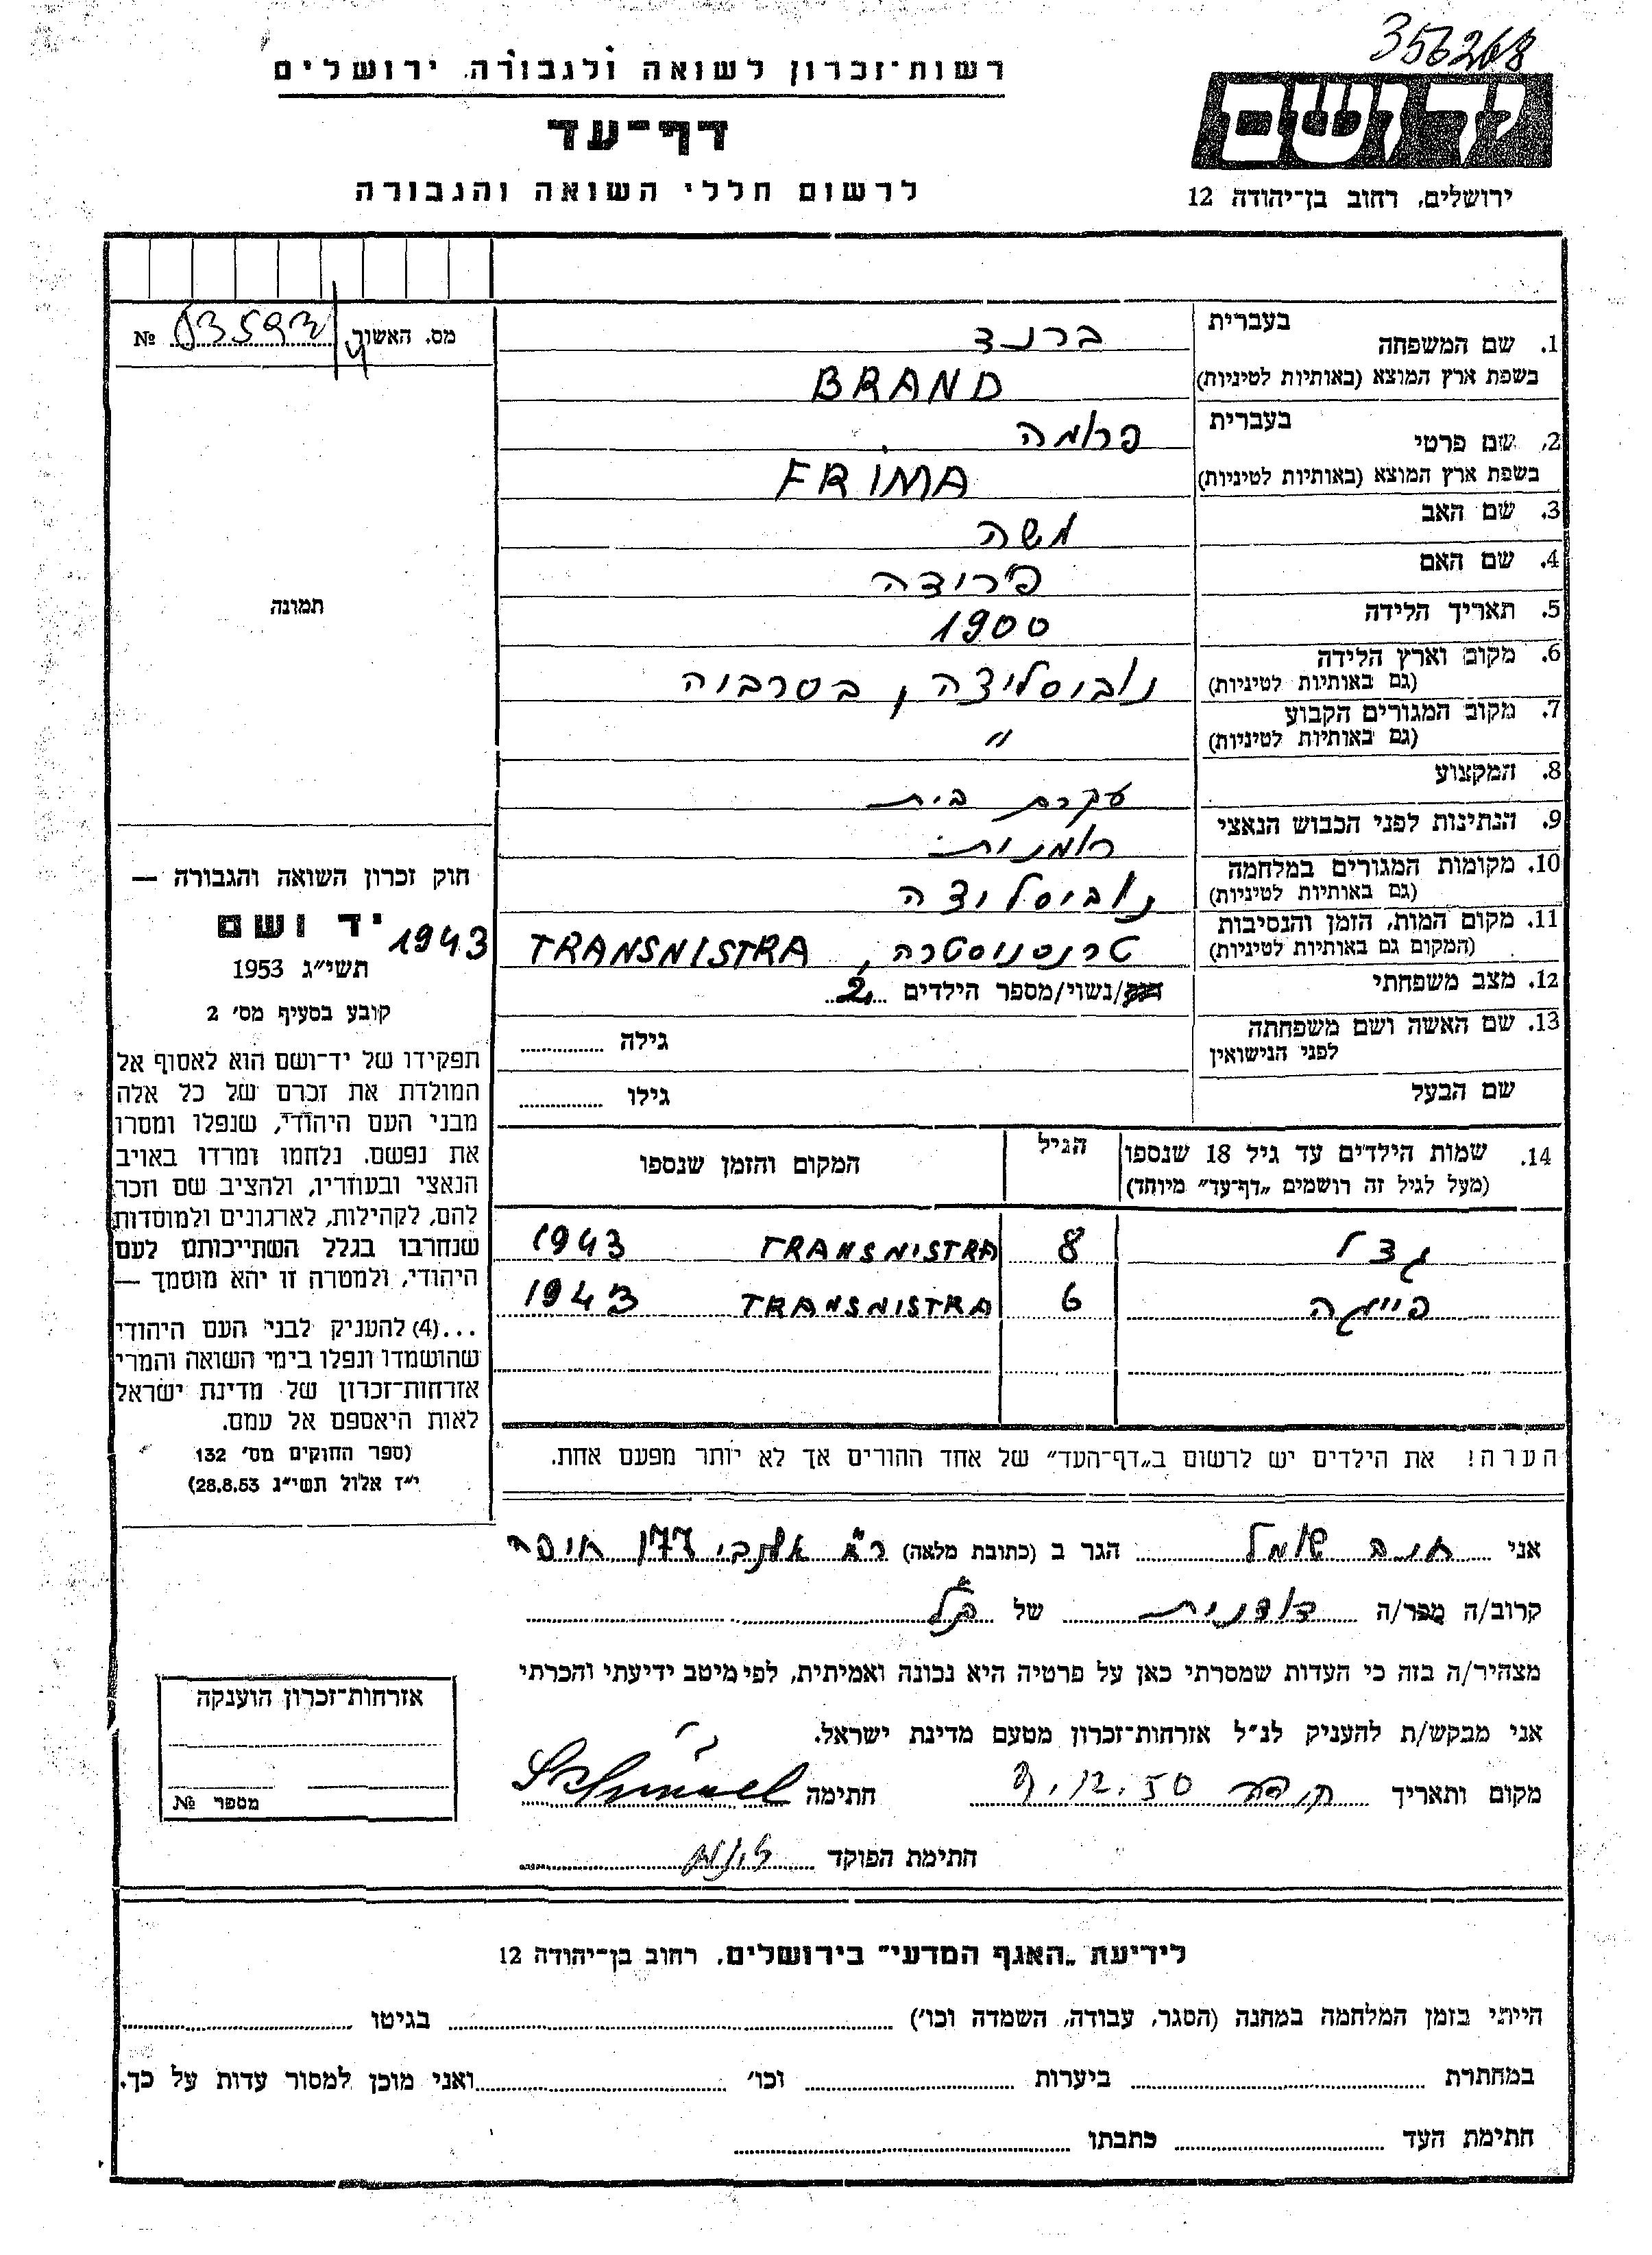 356268
רשות־זכרון לשואה ולגבורה, ירושלים
ידושם
דף־עד
לרשום חללי השואה והגבורה
ירושלים, רחוב בן־יהודה 12
מס. האשור 03593 №
1. שם המשפחה
בעברית
ברנד
בשפת ארץ המוצא (באותיות לטיניות)
BRAND
2. שם פרטי
בעברית
פרומה
בשפת ארץ המוצא (באותיות לטיניות)
FRIMA
3. שם האב
משה
4. שם האם
פרודה
5. תאריך הלידה
1900
6. מקום וארץ הלידה
(גם באותיות לטיניות)
נובוסליצה, בסרביה
7. מקום המגורים הקבוע
(גם באותיות לטיניות)
״
8. המקצוע
עקרת בית
9. הנתינות לפני הכבוש הנאצי
רומנית
10. מקומות המגורים במלחמה
(גם באותיות לטיניות)
נובוסליצה
11. מקום המות, הזמן והנסיבות
(המקום גם באותיות לטיניות)
טרנסניסטרה, TRANSNISTRA 1943
12. מצב משפחתי
רווק/נשוי/מספר הילדים 2
13. שם האשה ושם משפחתה
לפני הנישואין
גילה
שם הבעל
גילו
14. שמות הילדים עד גיל 18 שנספו
(מעל לגיל זה רושמים „דף־עד״ מיוחד)
הגיל
המקום והזמן שנספו
גצל 8 TRANSNISTRA 1943
פייגה 6 TRANSNISTRA 1943
הערה! את הילדים יש לרשום ב„דף־העד״ של אחד ההורים אך לא יותר מפעם אחת.
תמונה
חוק זכרון השואה והגבורה —
יד ושם
תשי״ג 1953
קובע בסעיף מס׳ 2
תפקידו של יד־ושם הוא לאסוף אל
המולדת את זכרם של כל אלה
מבני העם היהודי, שנפלו ומסרו
את נפשם, נלחמו ומרדו באויב
הנאצי ובעוזריו, ולהציב שם וזכר
להם, לקהילות, לארגונים ולמוסדות
שנחרבו בגלל השתייכותם לעם
היהודי, ולמטרה זו יהא מוסמך —
...(4) להעניק לבני העם היהודי
שהושמדו ונפלו בימי השואה והמרי
אזרחות־זכרון של מדינת ישראל
לאות היאספם אל עמם.
(ספר החוקים מס׳ 132
י״ז אלול תשי״ג 28.8.53)
אני חנה שמל הגר ב (כתובת מלאה) חיפה
קרוב/ה מפר/ה דודנית של הנ״ל
מצהיר/ה בזה כי העדות שמסרתי כאן על פרטיה היא נכונה ואמיתית, לפי מיטב ידיעתי והכרתי
אני מבקש/ת להעניק לנ״ל אזרחות־זכרון מטעם מדינת ישראל.
מקום ותאריך חיפה חתימה
חתימת הפוקד
אזרחות־זכרון הוענקה
מספר №
לידיעת „האגף המדעי״ בירושלים, רחוב בן־יהודה 12
הייתי בזמן המלחמה במחנה (הסגר, עבודה, השמדה וכו׳) בגיטו
במחתרת ביערות וכו׳ ואני מוכן למסור עדות על כך.
חתימת העד כתבתו